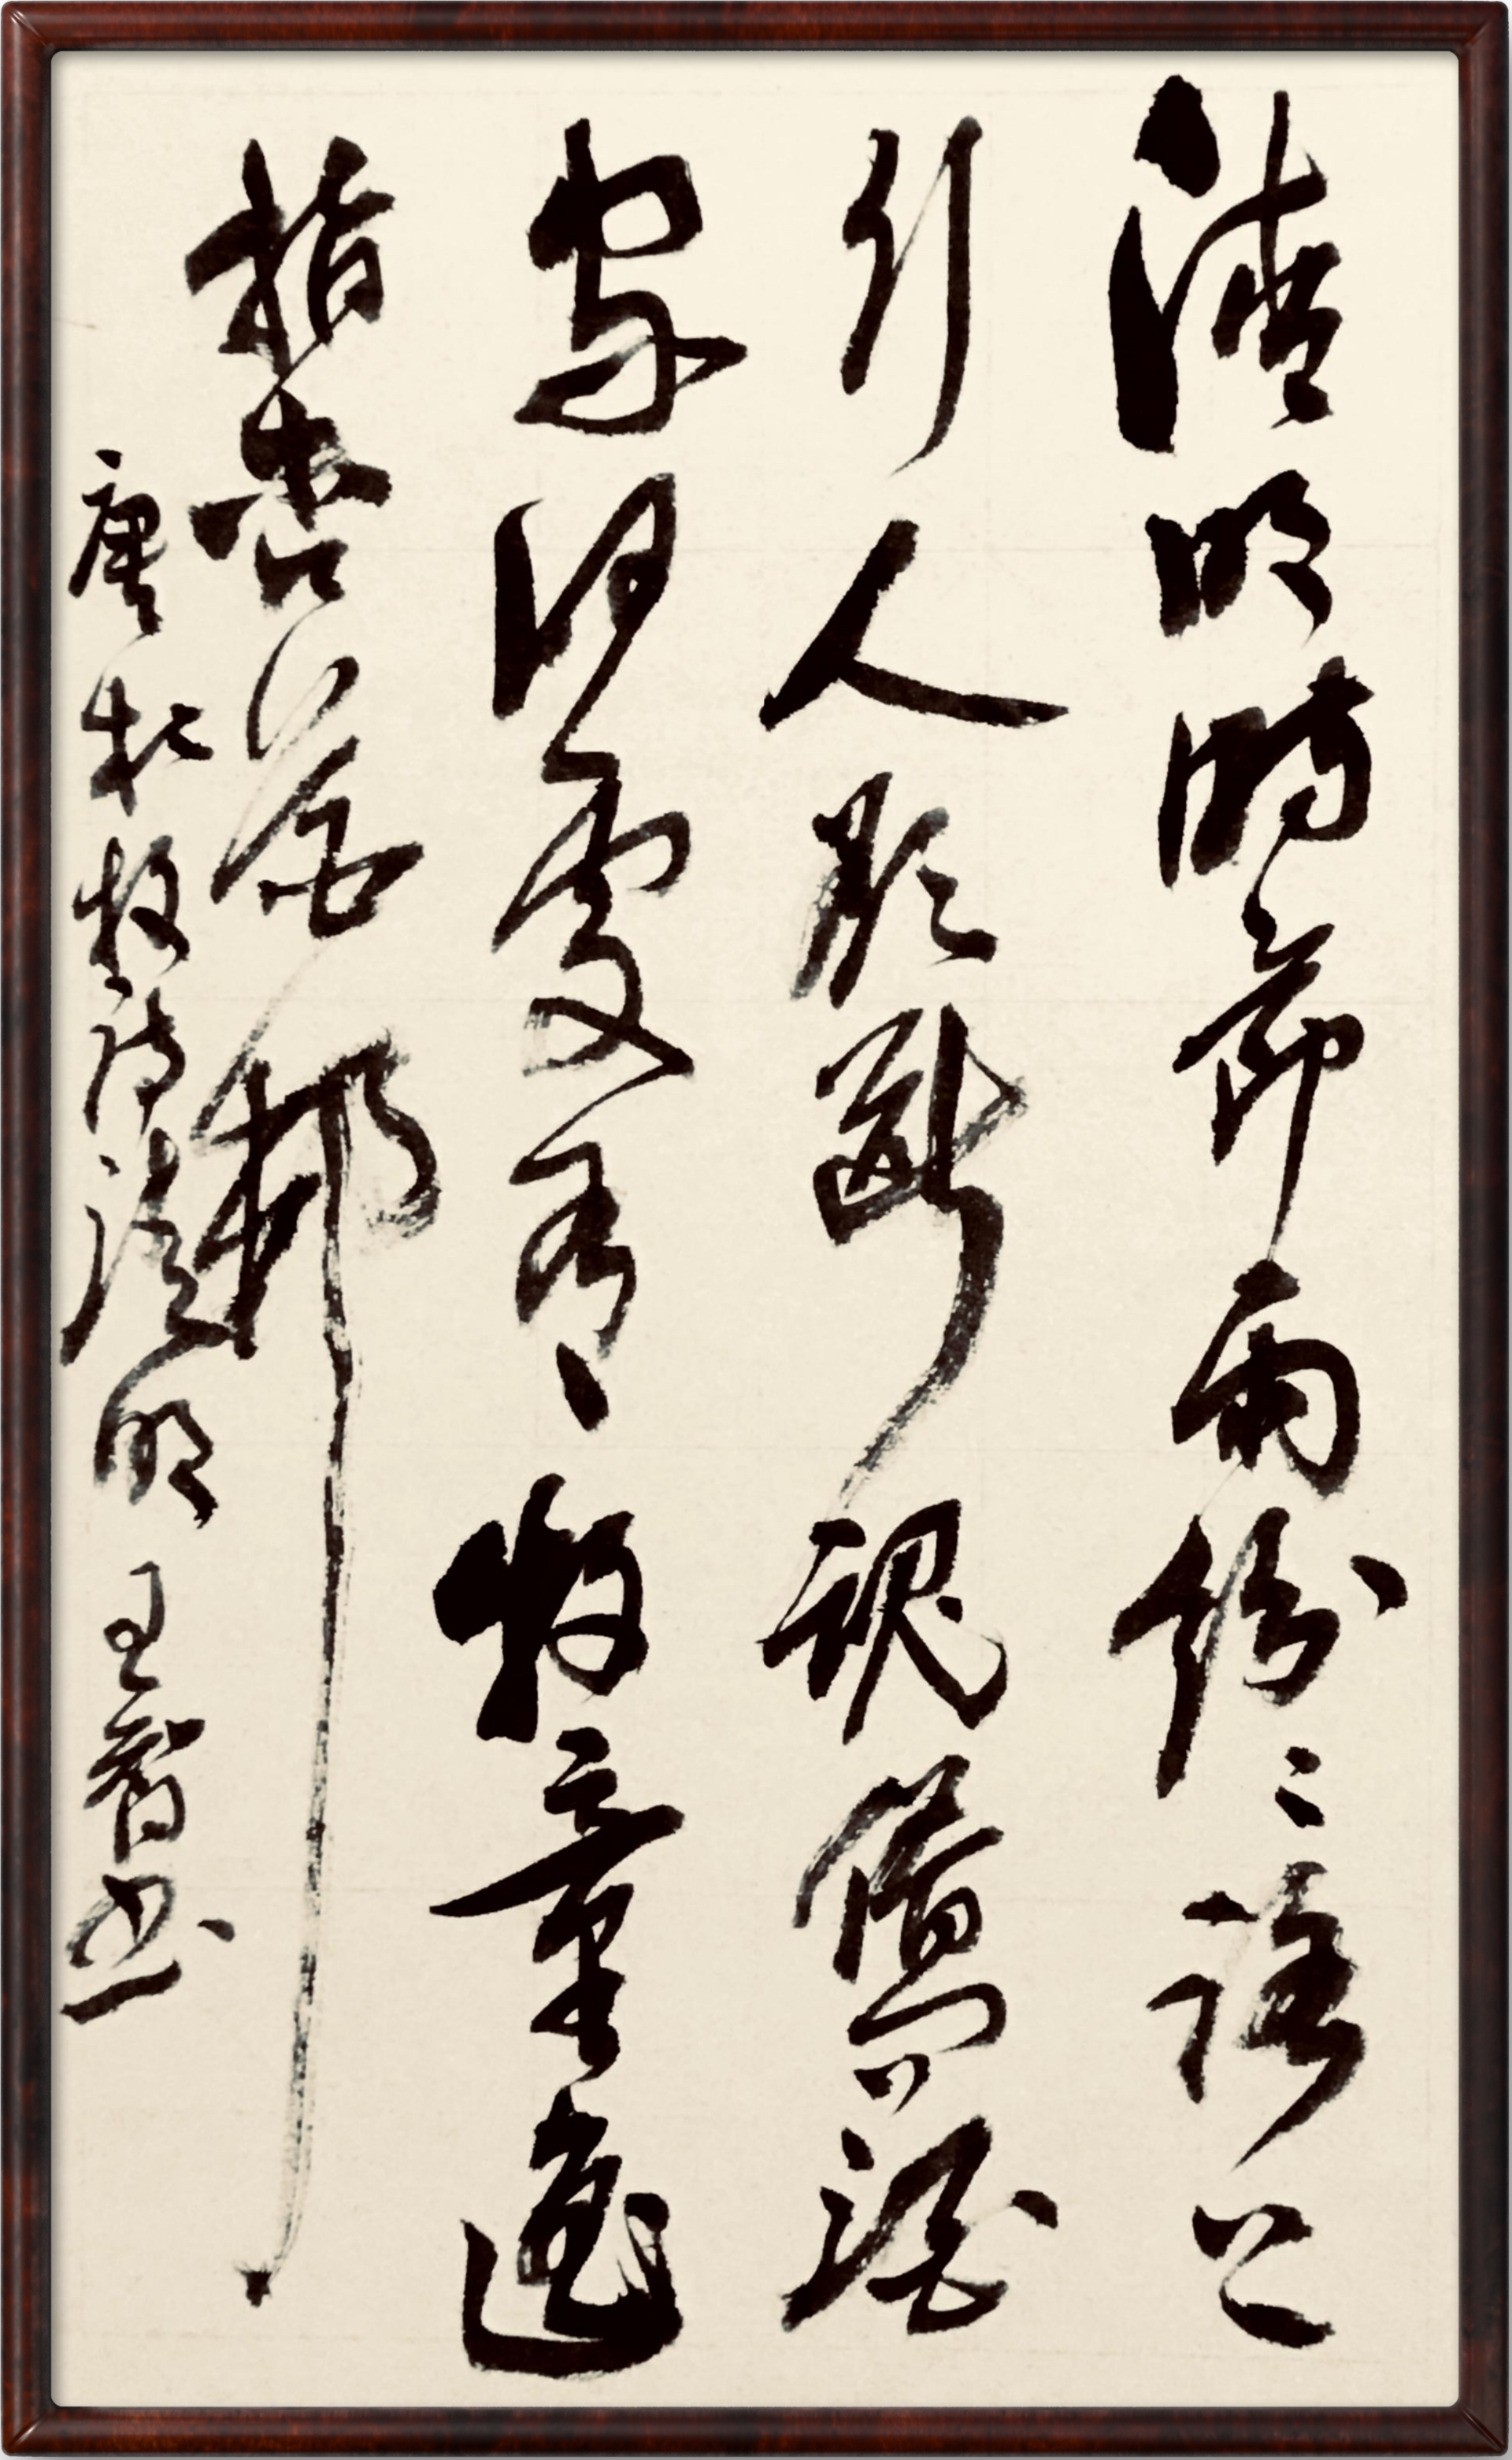 清明時節雨紛々路上
行人欲斷魂借問酒
家何處有牧童遙
指杏花邨
唐杜牧詩清明 王智书